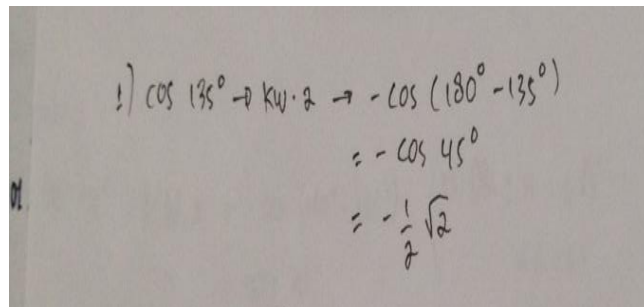 1) cos 135° → kw. 2 → - cos (180° - 135°)
= - cos 45°
= - 1/2 √2